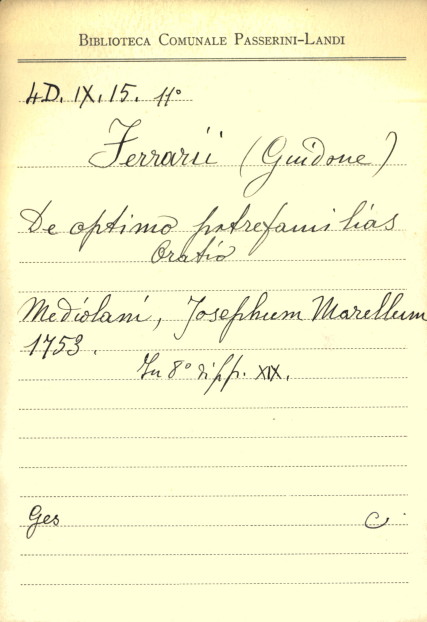 BIBLIOTECA COMUNALE PASSERINI-LANDI
4D. IX. 15. 11°
Ferrarii (Guidone)
De optimo patrefamilias
Oratio
Mediolani, Josephum Marellum
1753.
In 8° di pp. XIX.
Ges C